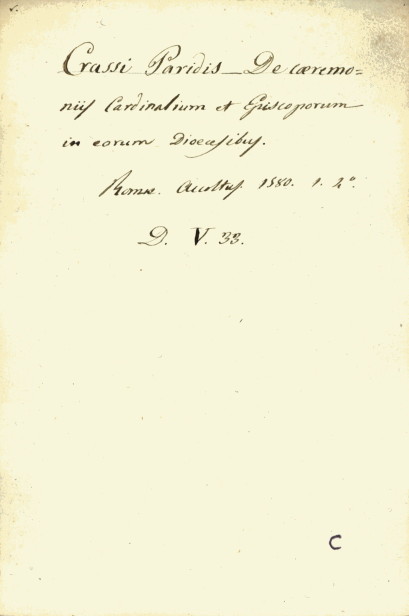 Crassi Paridis_ De cæremo=
niis Cardinalium et Episcoporum
in eorum Dioecesibus.
Romæ. Accoltus. 1580. 1. 2º.
D. V. 33.
C